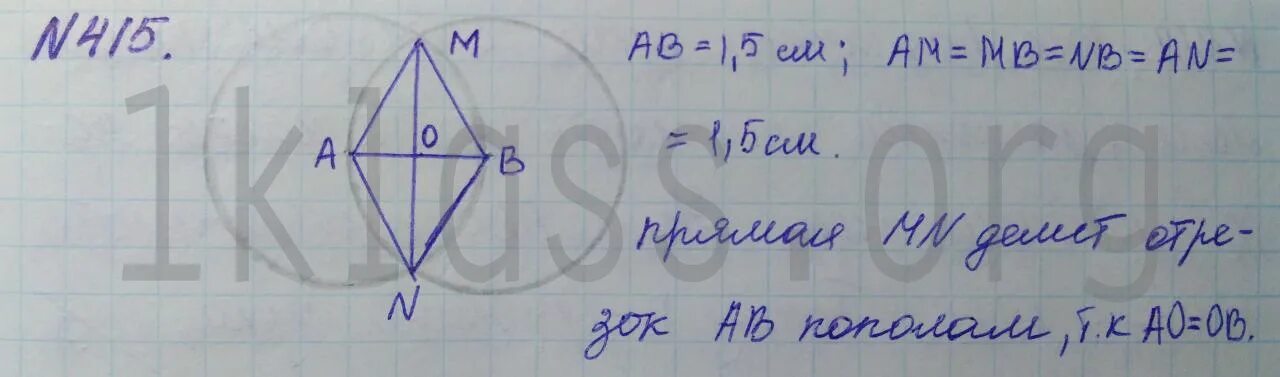 N415.
M
A
O
B
N
AB = 1,5 см; AM = MB = NB = AN =
= 1,5 см.
прямая MN делит отре-
зок AB пополам, т.к AO=OB.
1klass.org